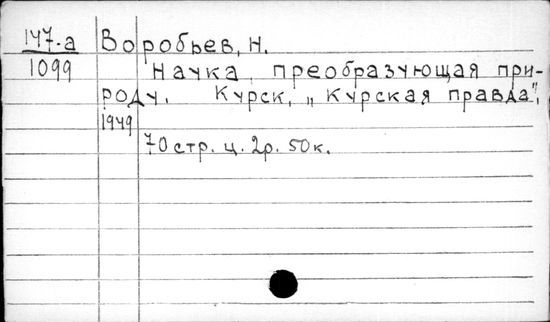 147-а Воробьев, Н.
1099 Наука, преобразующая при-
роду. Курск, „Курская правда",
1949
70 стр. ц. 2р. 50к.